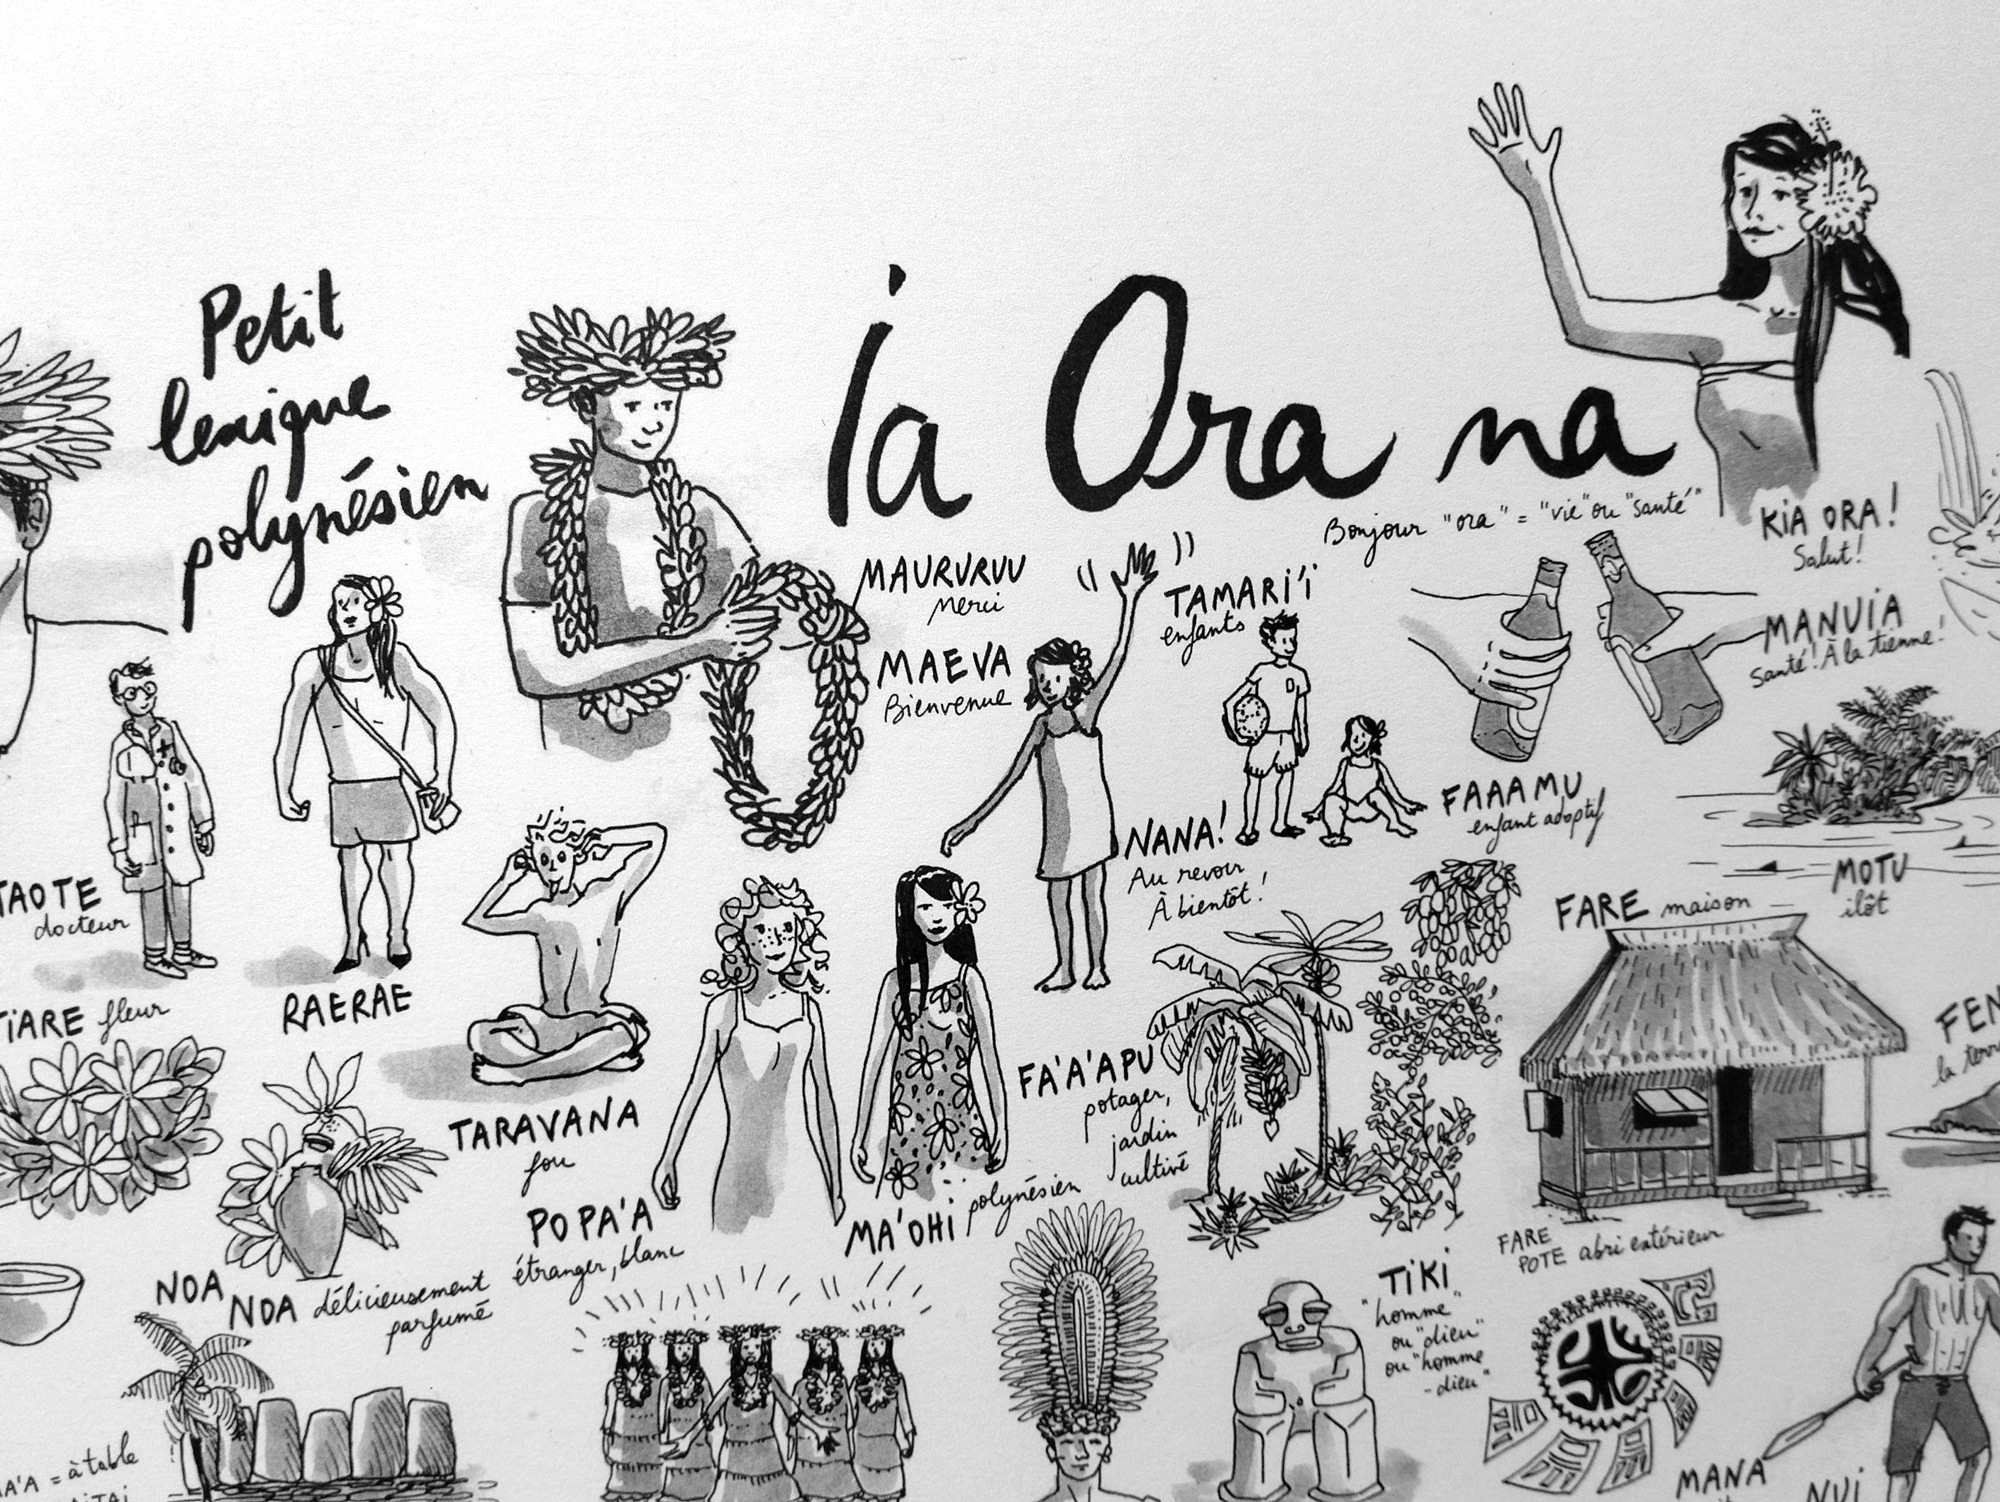 Petit
lexique
polynésien
ia Ora na
Bonjour "ora" = "vie" ou "santé"
KIA ORA!
Salut!
MAURURUU
Merci
MAEVA
Bienvenue
TAMARI'I
enfants
MANUIA
Santé! À la tienne!
FAAAMU
enfant adoptif
NANA!
Au revoir
À bientôt!
MOTU
ilôt
FARE maison
TAOTE
docteur
RAERAE
TIARE fleur
TARAVANA
fou
FA'A'APU
potager,
jardin
cultivé
POPA'A
étranger, blanc
MA'OHI polynésien
NOA
NOA délicieusement
parfumé
FARE
POTE abri extérieur
TIKI
"homme"
ou "dieu"
ou "homme
-dieu"
MANA
NUI
= à table